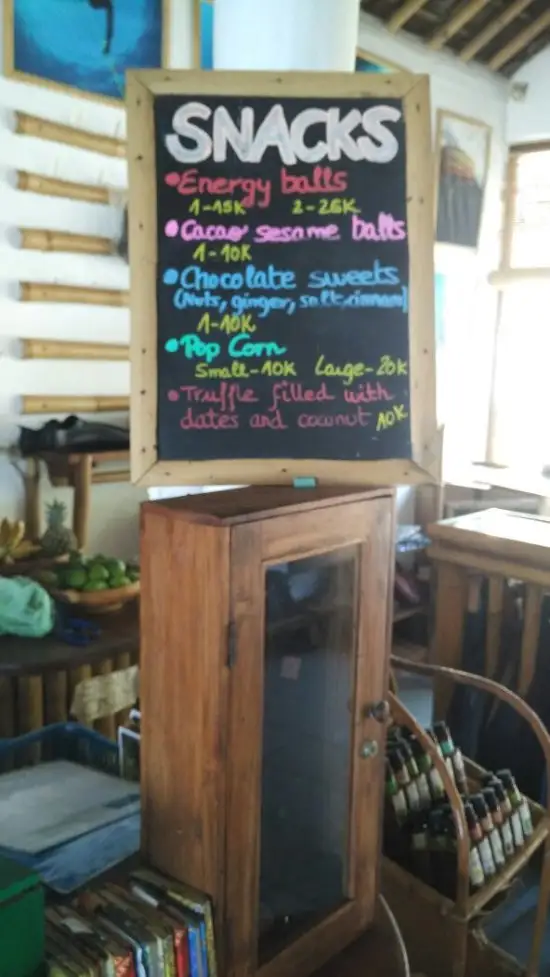 SNACKS
Energy balls
1-15K 2-26K
Cacao sesame balls
1-10K
Chocolate sweets
(Nuts, ginger, salt, cinnam)
1-10K
Pop Corn
Small-10K Large-20K
Truffle filled with
dates and coconut 10K